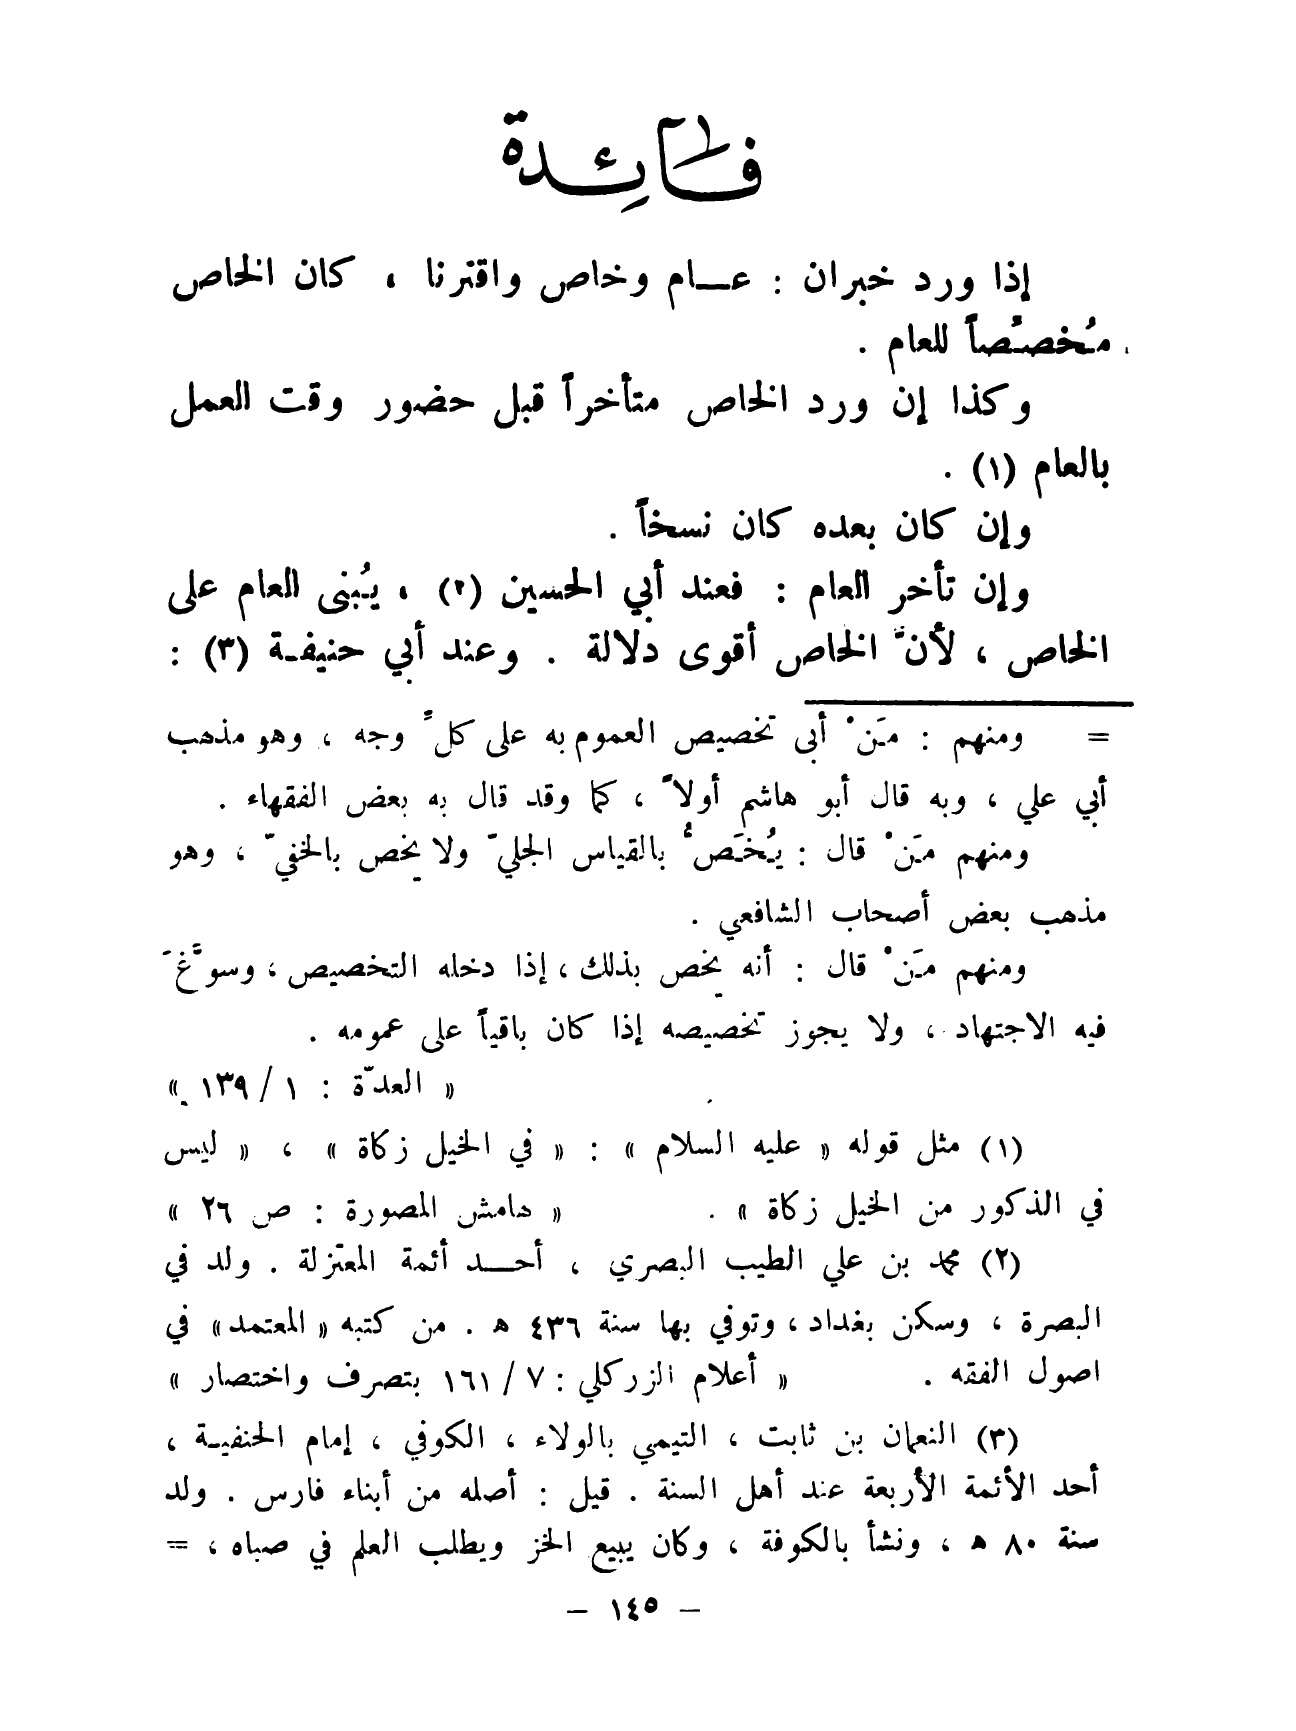 فائدة
إذا ورد خبران : عـام وخاص واقترنا ، كان الخاص
مُخصِّصاً للعام .
وكذا إن ورد الخاص متأخراً قبل حضور وقت العمل
بالعام (١) .
وإن كان بعده كان نسخاً .
وإن تأخر العام : فعند أبي الحسين (٢) ، يُبنى العام على
الخاص ، لأنَّ الخاص أقوى دلالة . وعند أبي حنيفـة (٣) :
= ومنهم : مَنْ أبى تخصيص العموم به على كلِّ وجه ، وهو مذهب
أبي علي ، وبه قال أبو هاشم أولاً ، كما وقد قال به بعض الفقهاء .
ومنهم مَنْ قال : يُخَصُّ بالقياس الجليّ ولا يخص بالخفيّ ، وهو
مذهب بعض أصحاب الشافعي .
ومنهم مَنْ قال : أنه يخص بذلك ، إذا دخله التخصيص ، وسوَّغَ
فيه الاجتهاد ، ولا يجوز تخصيصه إذا كان باقياً على عمومه .
« العدّة : ١ / ١٣٩ »
(١) مثل قوله « عليه السلام » : « في الخيل زكاة » ، « ليس
في الذكور من الخيل زكاة » . « هامش المصورة : ص ٢٦ »
(٢) محمد بن علي الطيب البصري ، أحـد أئمة المعتزلة . ولد في
البصرة ، وسكن بغداد ، وتوفي بها سنة ٤٣٦ ه . من كتبه « المعتمد » في
اصول الفقه . « أعلام الزركلي : ٧ / ١٦١ بتصرف واختصار »
(٣) النعمان بن ثابت ، التيمي بالولاء ، الكوفي ، إمام الحنفيـة ،
أحد الأئمة الأربعة عند أهل السنة . قيل : أصله من أبناء فارس . ولد
سنة ٨٠ ه ، ونشأ بالكوفة ، وكان يبيع الخز ويطلب العلم في صباه ، =
– ١٤٥ –